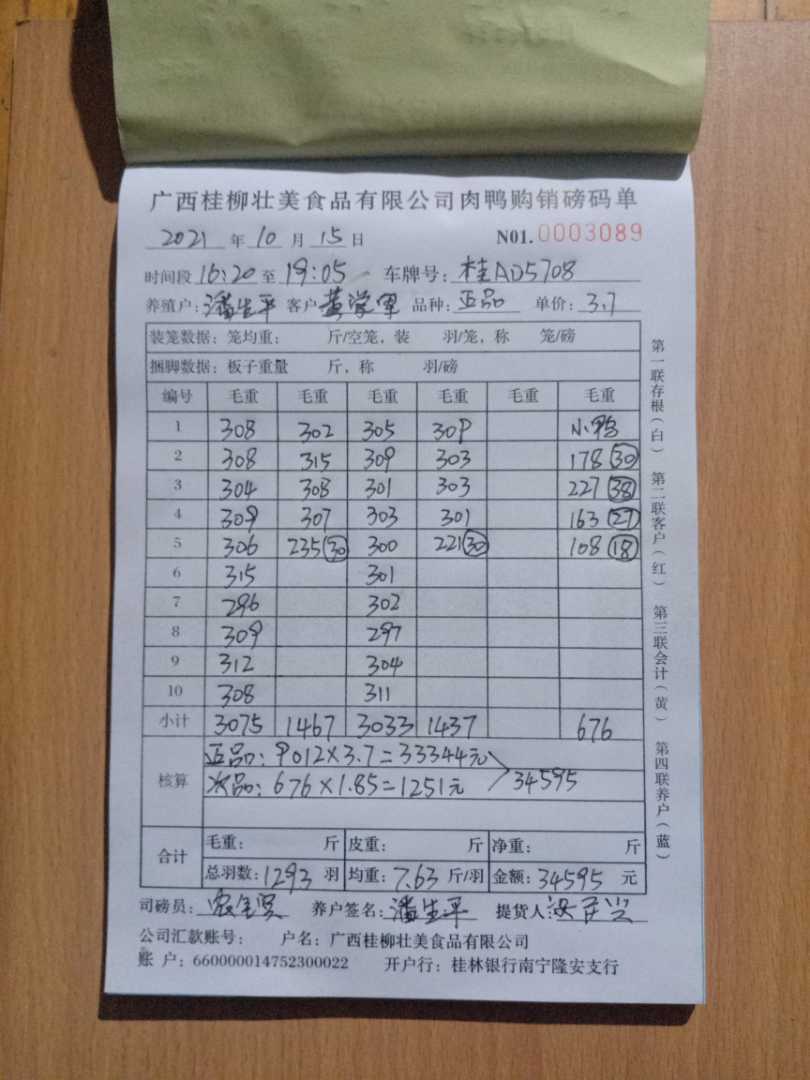 广西桂柳壮美食品有限公司肉鸭购销磅码单
2021 年 10 月 15 日 N01.0003089
时间段 16:20 至 19:05 车牌号: 桂AD5708
养殖户: 潘生平 客户 黄学军 品种: 正品 单价: 3.7
装笼数据: 笼均重: 斤/空笼, 装 羽/笼, 称 笼/磅
捆脚数据: 板子重量 斤, 称 羽/磅
编号 毛重 毛重 毛重 毛重 毛重 毛重
1 308 302 305 309 小鸭
2 308 315 309 303 178 30
3 304 308 301 303 227 38
4 309 307 303 301 163 27
5 306 235 30 300 221 30 108 18
6 315 301
7 296 302
8 309 297
9 312 304
10 308 311
小计 3075 1467 3033 1437 676
核算
正品: 9012×3.7=33344元
次品: 676×1.85=1251元
34595
合计
毛重: 斤 皮重: 斤 净重: 斤
总羽数: 1293 羽 均重: 7.63 斤/羽 金额: 34595 元
司磅员: 养户签名: 潘生平 提货人:
公司汇款账号: 户名: 广西桂柳壮美食品有限公司
账 户: 660000014752300022 开户行: 桂林银行南宁隆安支行
第一联存根(白) 第二联客户(红) 第三联会计(黄) 第四联养户(蓝)